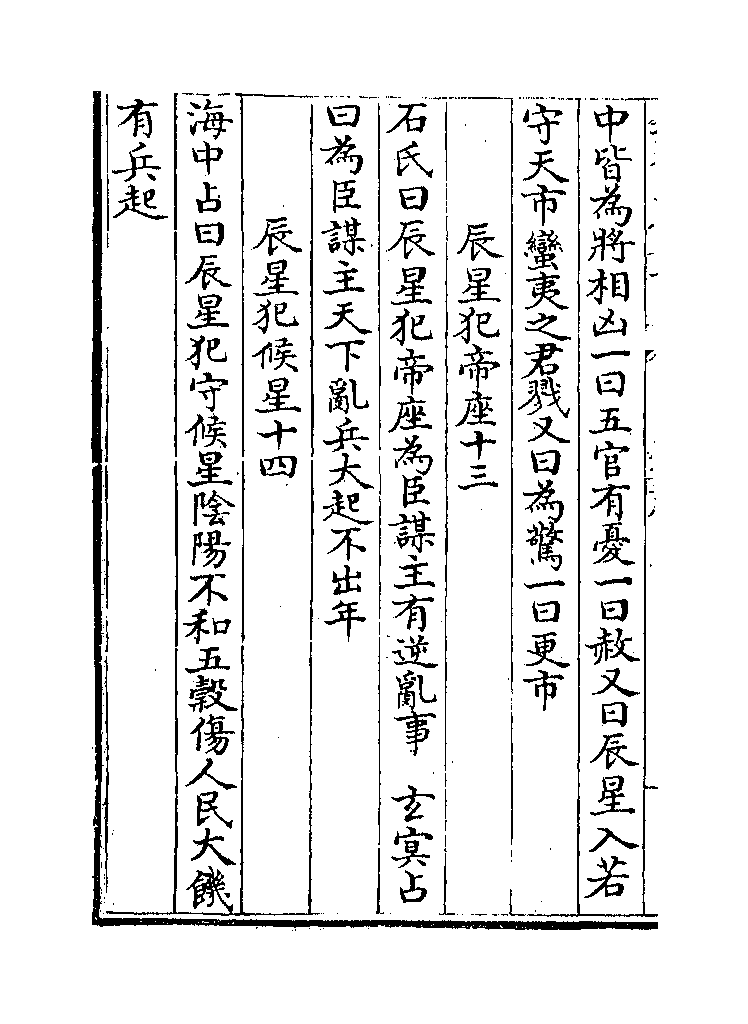 中皆為將相凶一曰五官有憂一曰赦又曰辰星入若
守天市蠻夷之君戮又曰為驚一曰更市
辰星犯帝座十三
石氏曰辰星犯帝座為臣謀主有逆亂事　玄冥占
曰為臣謀主天下亂兵大起不出年
辰星犯候星十四
海中占曰辰星犯守候星陰陽不和五穀傷人民大饑
有兵起